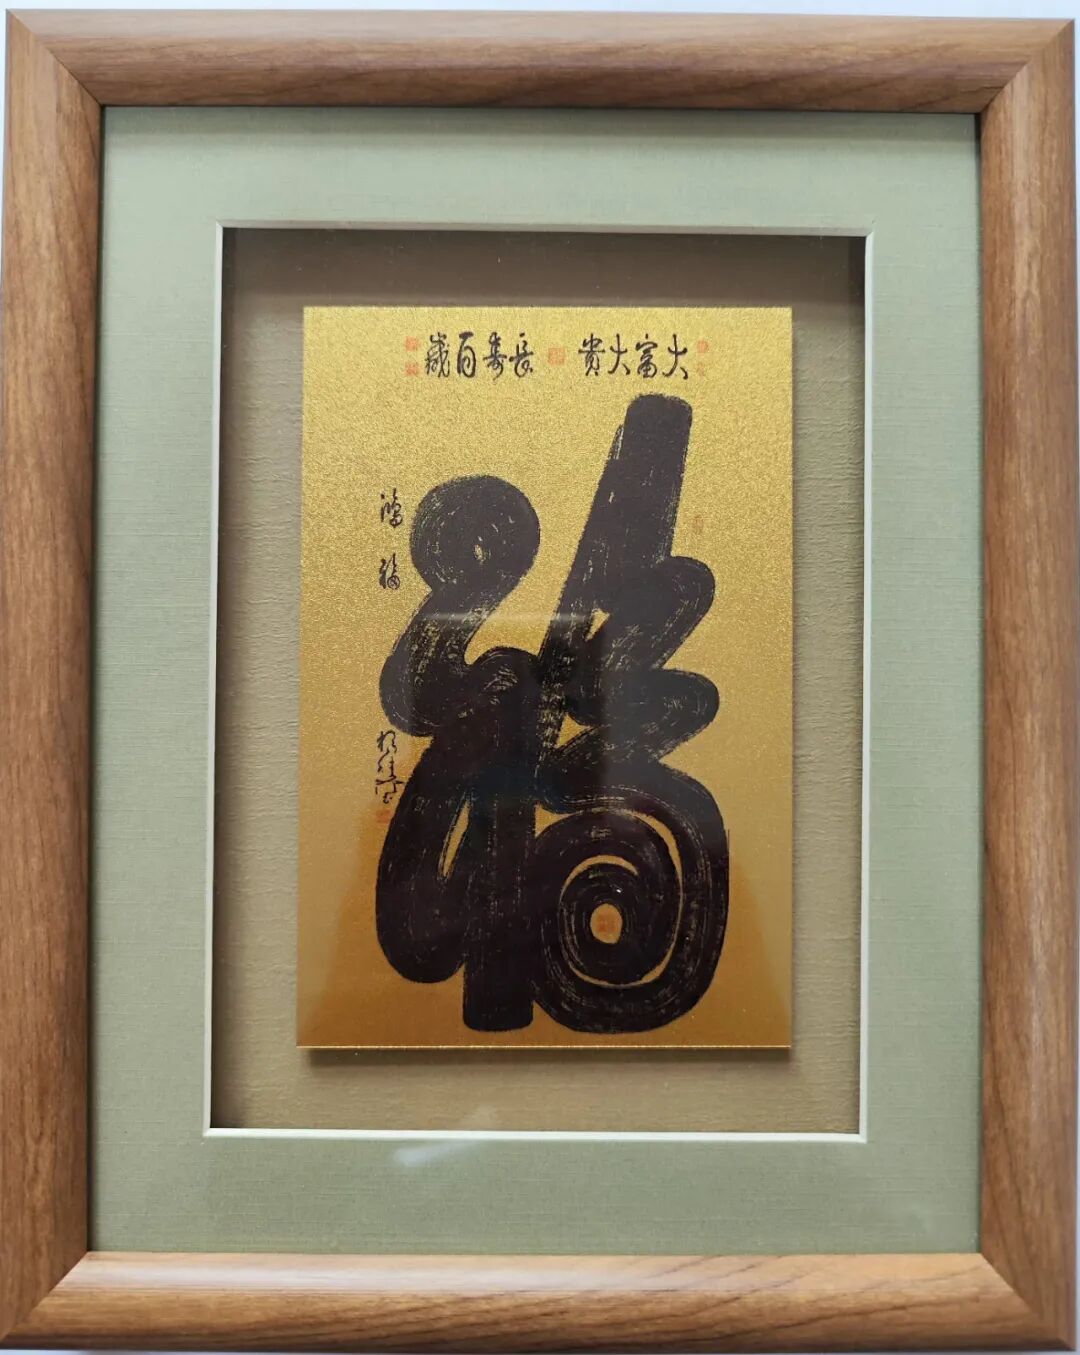 大富大貴 長壽百歲
福
鴻福